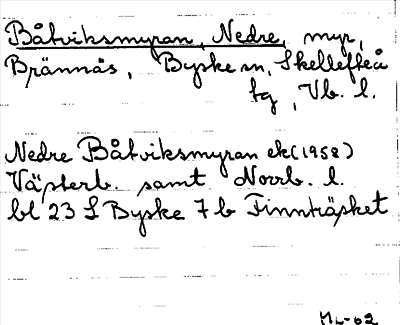 Båtviksmyran, Nedre, myr,
Brännås, Byske sn, Skellefteå
tg, Vb. l.
Nedre Båtviksmyran ek(1958)
Västerb. samt Norrb. l.
bl 23 L Byske 7 b Finnträsket
ML-62